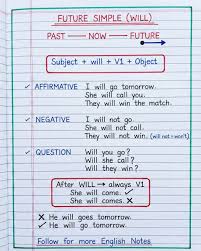 FUTURE SIMPLE (WILL)
PAST — NOW — FUTURE
Subject + will + V1 + Object
✓ AFFIRMATIVE I will go tomorrow.
She will call you.
They will win the match.
✓ NEGATIVE I will not go.
She will not call.
They will not win. (will not = won't)
✓ QUESTION Will you go?
Will she call?
Will they win?
After WILL → always V1
She will come. ✓
She will comes. ✗
✗ He will goes tomorrow.
✓ He will go tomorrow.
Follow for more English Notes